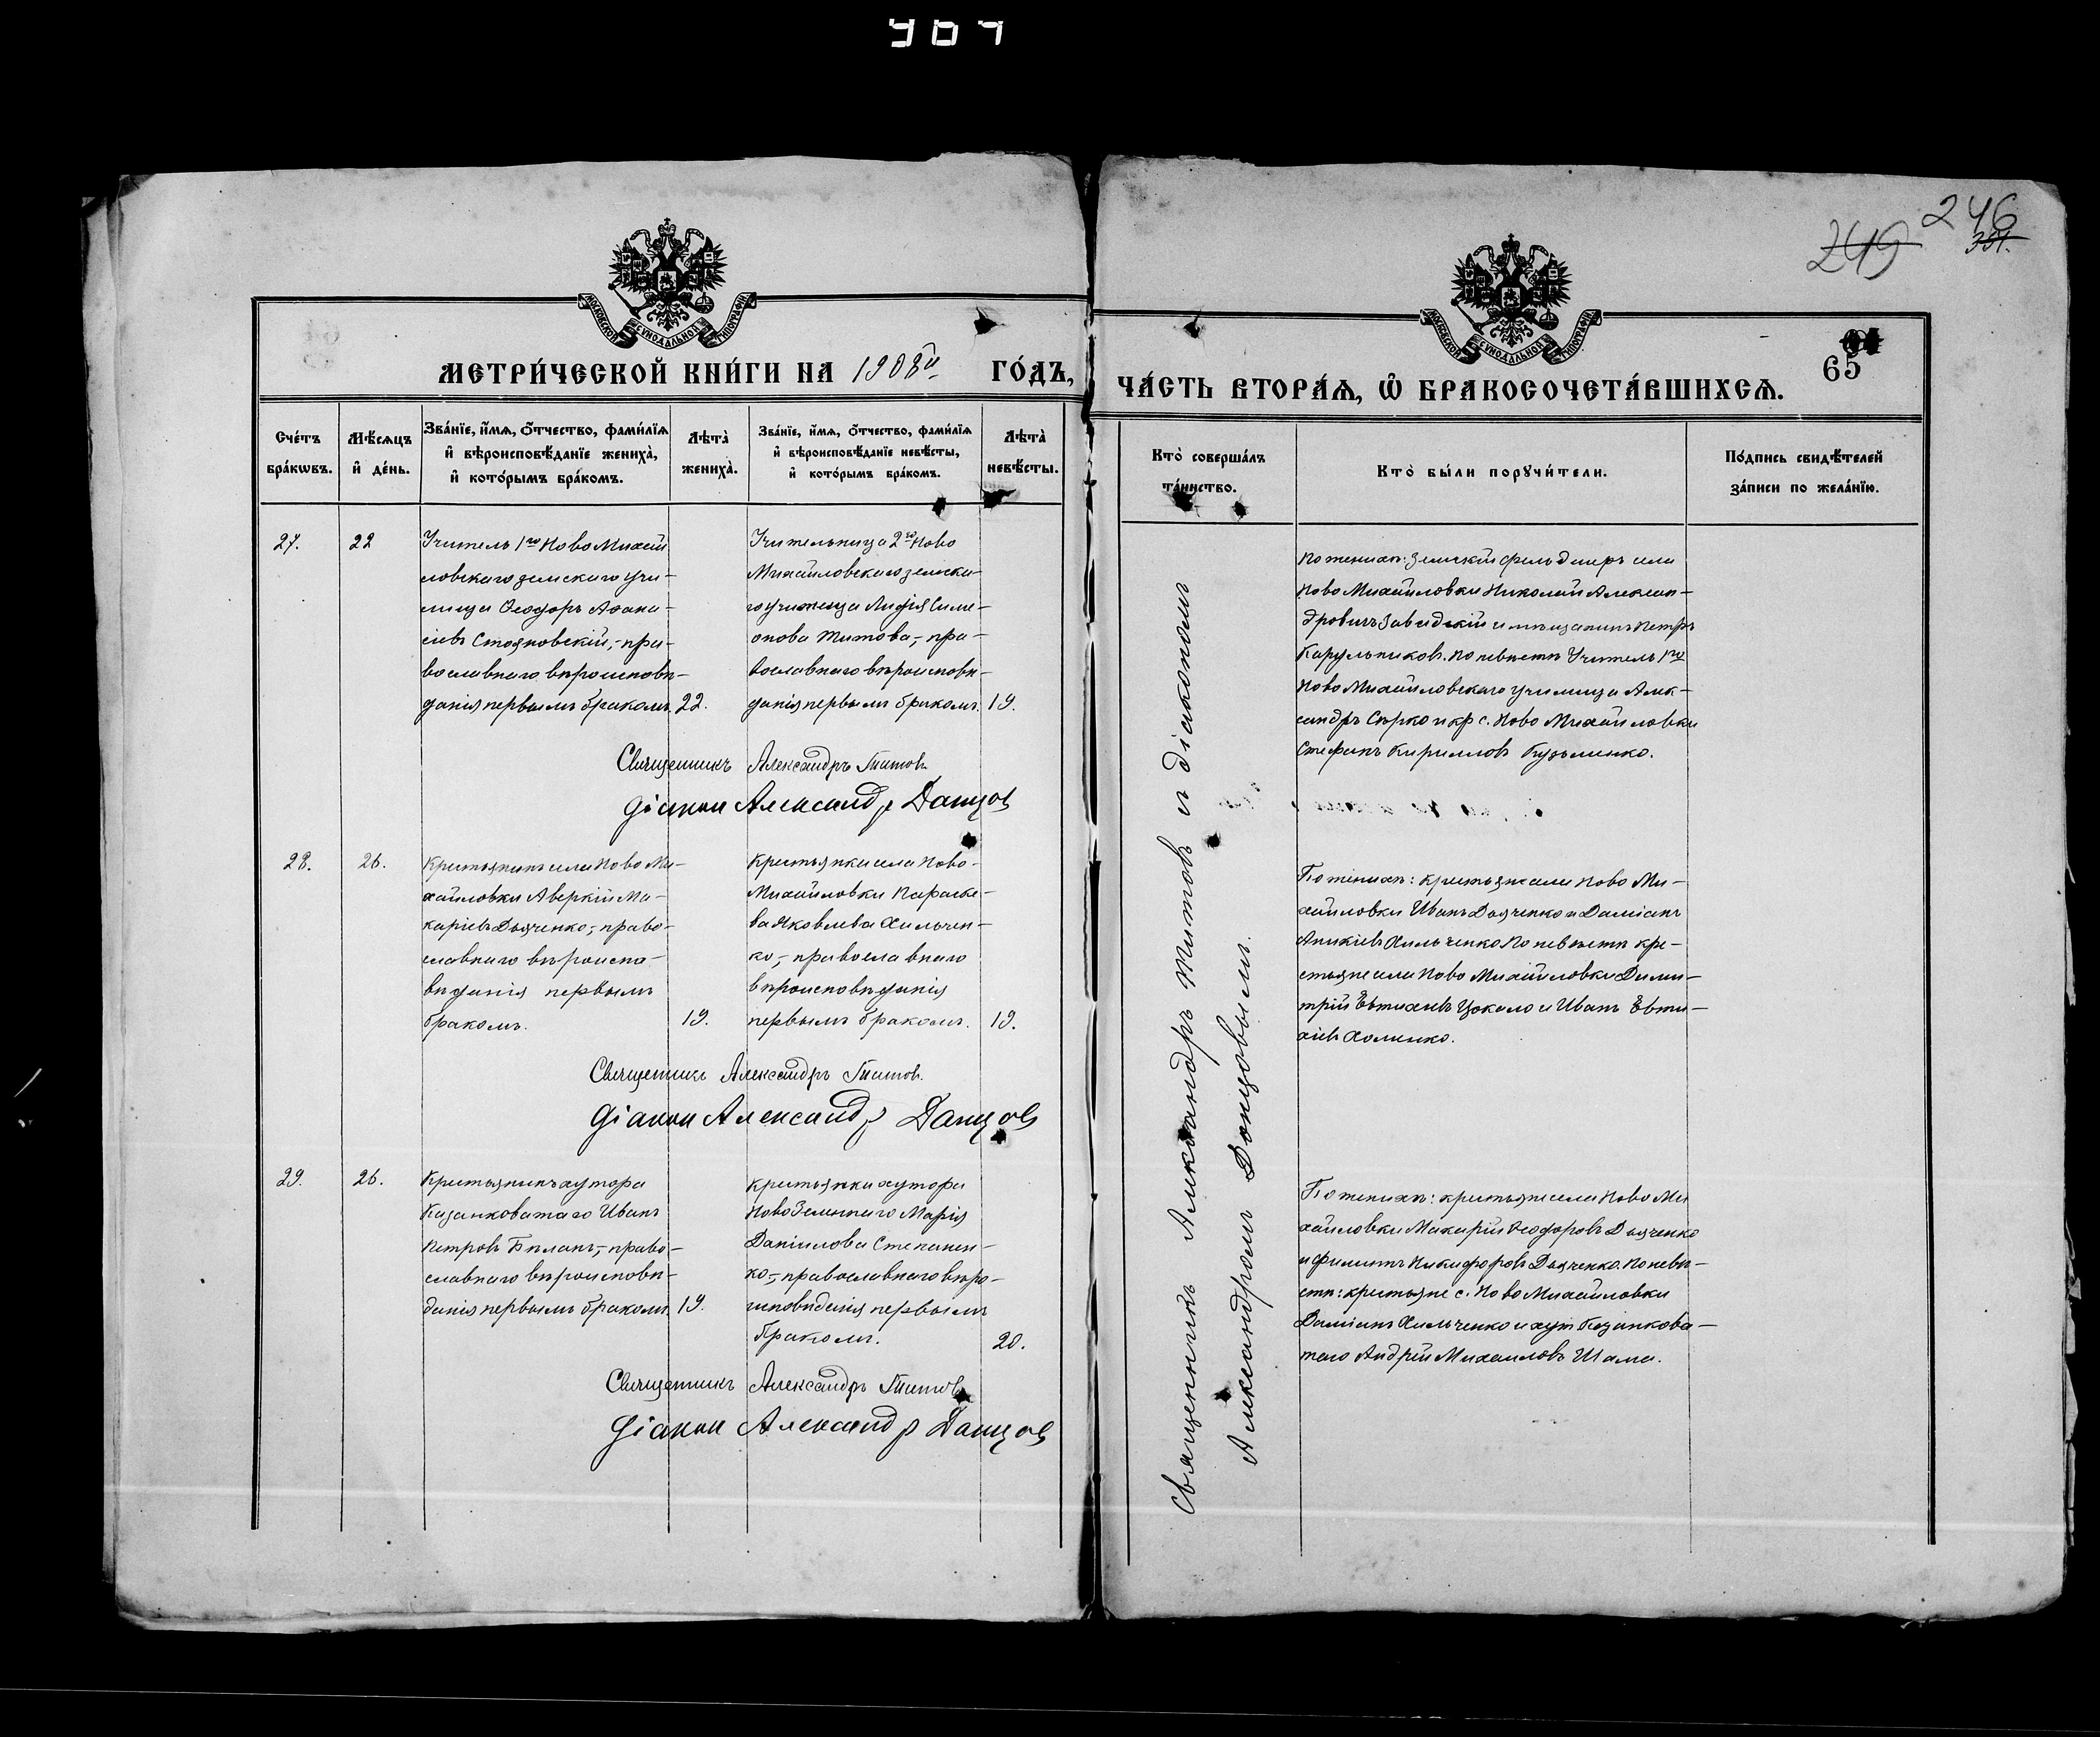 907
246
249
301.
МОСКОВСКОЙ СѴНОДАЛЬНОЙ ТИПОГРАФІИ
МОСКОВСКОЙ СѴНОДАЛЬНОЙ ТИПОГРАФІИ
МЕТРИ́ЧЕСКОЙ КНИ́ГИ НА 1908й ГО́ДЪ,
ЧА́СТЬ ВТОРА́Ѧ, Ѽ БРАКОСОЧЕТА́ВШИХСѦ.
65
Сче́тъ бра́кѡвъ.
Мѣ́сѧцъ и҆ де́нь.
Зва́нїе, и҆́мѧ, ѻ҆́тчество, фами́лїѧ и҆ вѣроисповѣ́данїе жениха̀, и҆ кото́рымъ бра́комъ.
Лѣта̀ жениха̀.
Зва́нїе, и҆́мѧ, ѻ҆́тчество, фами́лїѧ и҆ вѣроисповѣ́данїе невѣ́сты, и҆ кото́рымъ бра́комъ.
Лѣта̀ невѣ́сты.
Кто̀ соверша́лъ та́инство.
Кто̀ бы́ли порꙋчи́тели.
По́дпись свидѣ́телей за́писи по жела́нїю.
27.
22
Учитель 1го Ново Михай
ловскаго земскаго учи-
лища Ѳеодоръ Аѳана-
сіевъ Стояновскій,- пра-
вославнаго вѣроисповѣ-
данія первымъ бракомъ.
22.
Учительница 2го Ново
Михайловскаго земска-
го училища Лидія Симе-
онова Титова,- пра-
вославнаго вѣроисповѣ-
данія первымъ бракомъ.
19.
Священникъ Александръ Титовъ
Діакон Александр Данцов
По женихѣ: Земскій фельдшеръ села
Ново Михайловки Николай Алексан-
дровичъ Завидскій и мѣщанинъ Петръ
Карульников. По невѣстѣ Учитель 1го
Ново Михайловскаго училища Алек-
сандръ Сѣрко и кр с. Ново Михайловки
Стефанъ Кирилловъ Кузьменко.
28.
26.
Крестьянинъ села Ново Ми-
хайловки Аверкій Ма-
каріевъ Дьяченко,- право-
славнаго вѣроиспо-
вѣданія первымъ
бракомъ.
19.
Крестьянка села Ново-
Михайловки Параске-
ва Яковлева Хильчен-
ко,- православнаго
вѣроисповѣданія
первымъ бракомъ.
19.
Священникъ Александръ Титов.
Діакон Александр Данцов
По женихѣ: крестьяне села Ново Ми-
хайловки Иванъ Дьяченко и Даміанъ
Аникіевъ Хильченко По невѣстѣ кре-
стьяне села Ново Михайловки Дими-
трій Евтихіевъ Цокало и Иванъ Евти-
хіевъ Хоменко.
29.
26.
Крестьянинъ хутора
Казанковатаго Иванъ
Петровъ Бѣланъ,- право-
славнаго вѣроисповѣ-
данія первымъ бракомъ.
19.
Крестьянка хутора
Ново Зеленнаго Марія
Даніилова Степанен-
ко,- православнаго вѣро-
исповѣданія первымъ
бракомъ.
20.
Священникъ Александръ Титовъ
Діакон Александр Данцов
По женихѣ: крестьяне села Ново Ми
хайловки Макарій Ѳеодоровъ Дьяченко
и Филиппъ Никифоровъ Дьяченко. По невѣ-
стѣ: крестьяне с. Ново Михайловки
Даміанъ Хильченко и хут Казанкова-
таго Андрій Михаиловъ Шама.
Священникъ Александръ Титовъ и діакономъ
Александромъ Донцовымъ.